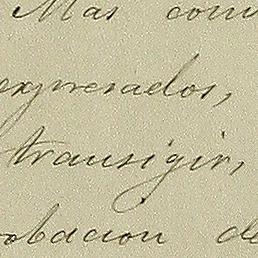 Mas com
expresados,
transigir,
obacion de